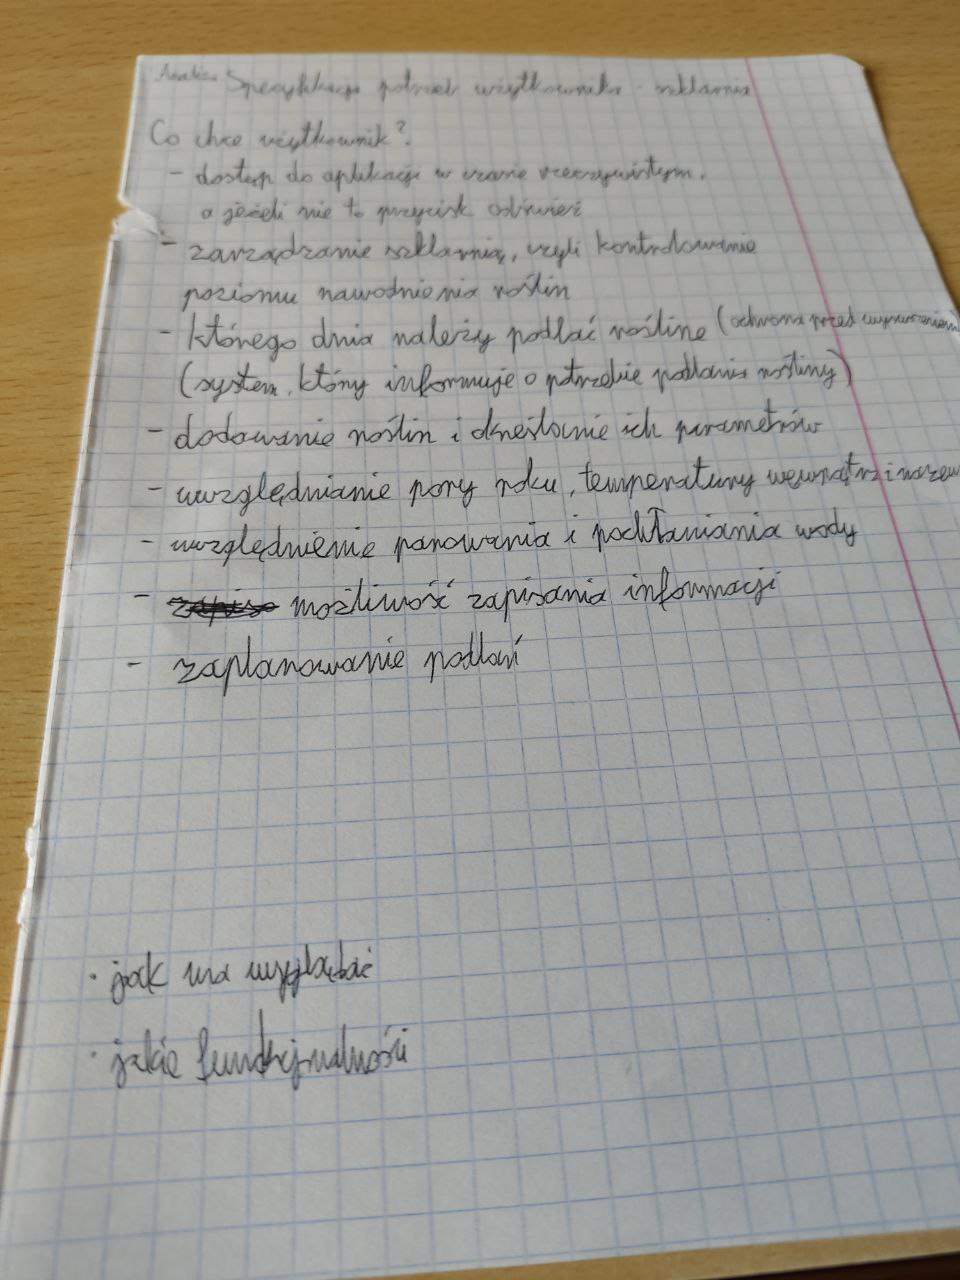 Analiza Specyfikacja potrzeb użytkownika - szklarnia
Co chce użytkownik?
- dostęp do aplikacji w czasie rzeczywistym,
a jeżeli nie to przycisk odśwież
- zarządzanie szklarnią, czyli kontrolowanie
poziomu nawodnienia roślin
- którego dnia należy podlać roślinę (ochrona przed
(system, który informuje o potrzebie podlania rośliny)
- dodawanie roślin i określanie ich parametrów
- uwzględnianie pory roku, temperatury wewnątrz i
- uwzględnienie parowania i pochłaniania wody
- możliwość zapisania informacji
- zaplanowanie podlań
· jak ma wyglądać
· jakie funkcjonalności